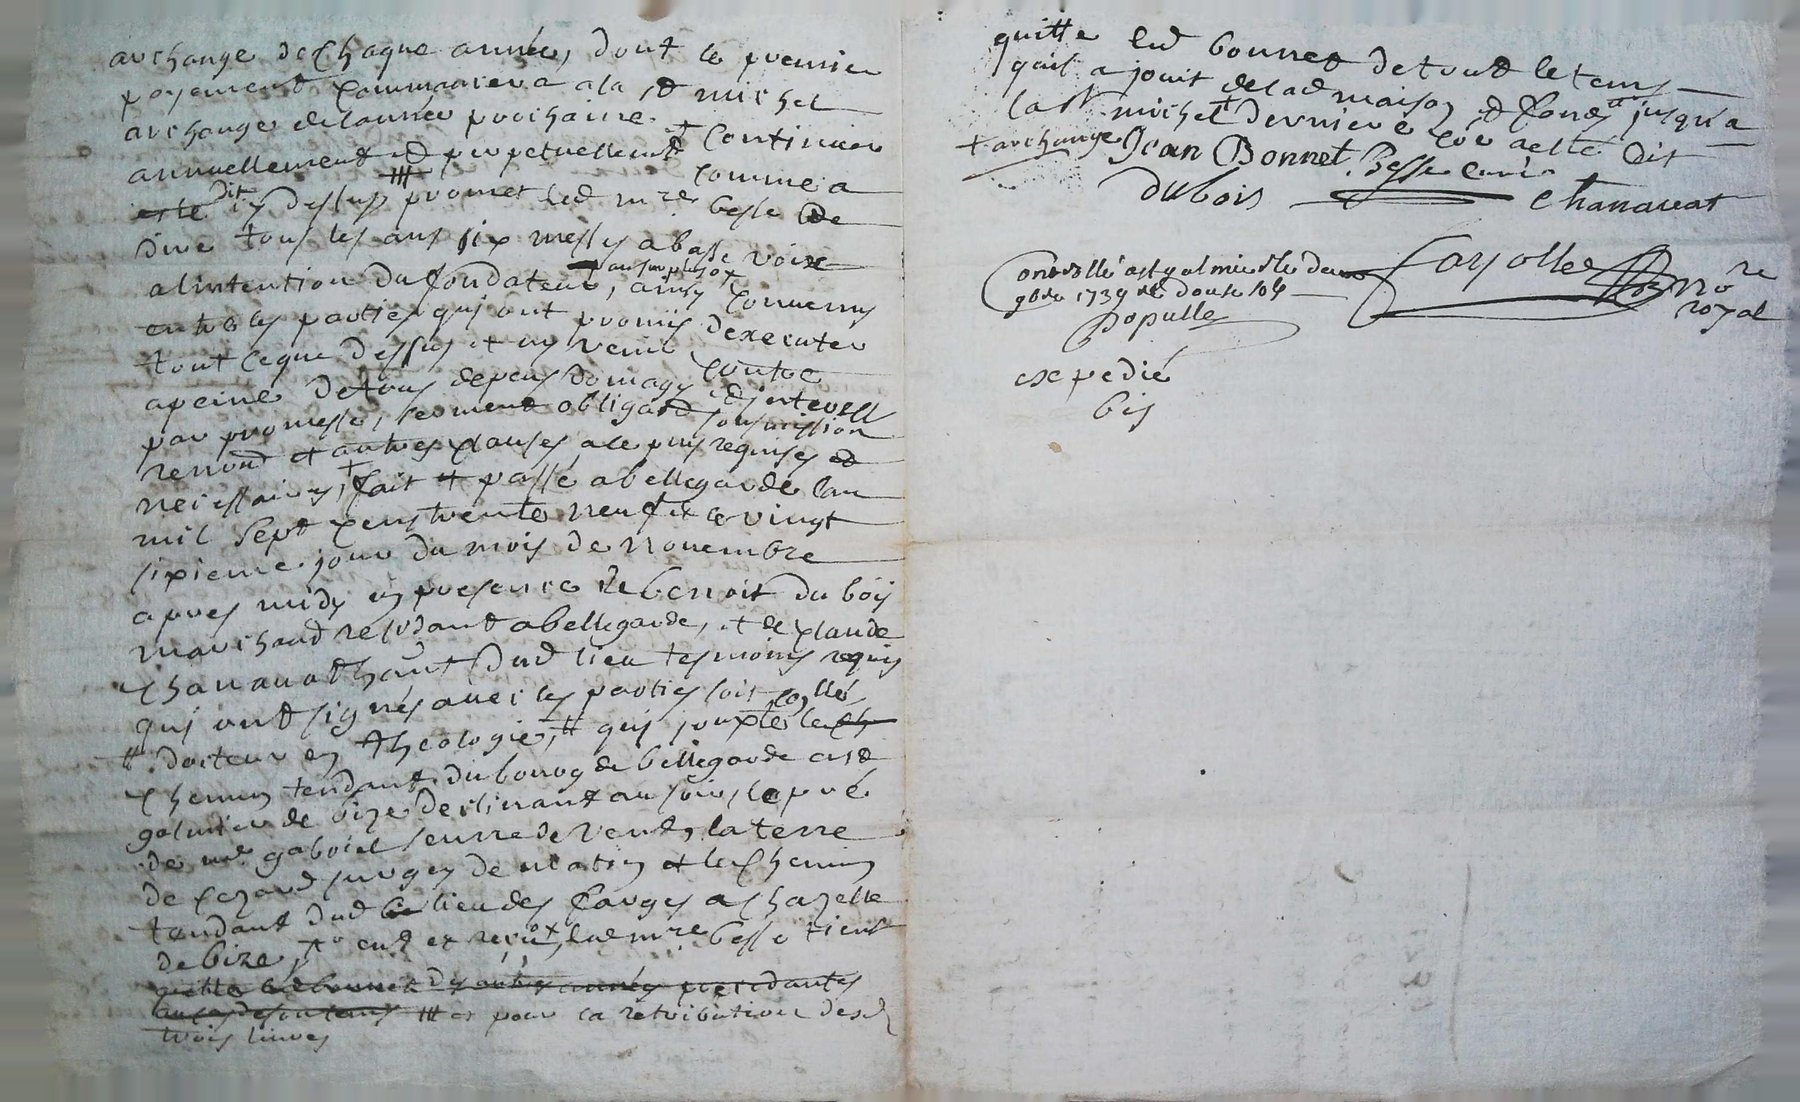 archange de chaque année, dont le premier
payement commancera a la st michel
archange de lannée prochaine + continuer
annuellement et perpetuellemt comme a
este dit cy dessus # promet led mre besse de
dire tous les ans six messes a basse voix
alintention du fondateur, ainsy convenus
entre les parties qui ont promis dexecuter
tout ceque dessus et ny venir contre
apeine de tous depens domages et interest
par promesse, serment obligaōn soumission
renonōn et autres clauses ace plus requises et
necessaires, + fait et passé abellegarde lan
mil sept cens trente neuf et le vingt
sixieme jour du mois de novembre
apres midy en presence de benoit du bois
marchand residant abellegarde, et de claude
chanavat dud lieu tesmoins requis
qui ont signés avec les parties soit collé
# docteur en theologie, # qui jouxte le ch
chemin tendant du bourg de bellegarde a st
galmier de bize declinant au soir, le pré
de mr gabriel seurre de vent, la terre
de de matin et le chemin
tendant dud lieu des farges a chazelle
de bize, led mre besse tient
quitte led bonnet des autres années precedantes
# et pour la retribution desd
trois livres
quitte led bonnet de tout le tems
quil a jouit delad maison et fonds jusqua
la st michel + derniere
+ archange Jean Bonnet Besse curé
dubois chanavat
Controllé a st galmier le douze
xbre 1739 rec douze sols
Populle
Fayolle no re
royal
expedié
bis